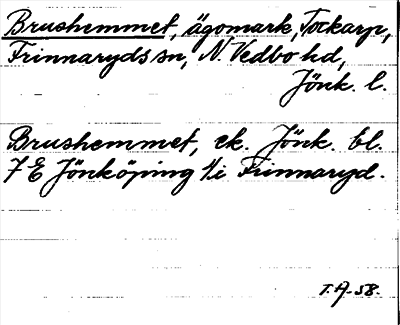 Brushemmet, ägomark, Tockarp,
Frinnaryds sn, N. Vedbo hd,
Jönk. l.
Brushemmet, ek. Jönk. bl.
7 E Jönköping 1/i Frinnaryd.
T.A-58.